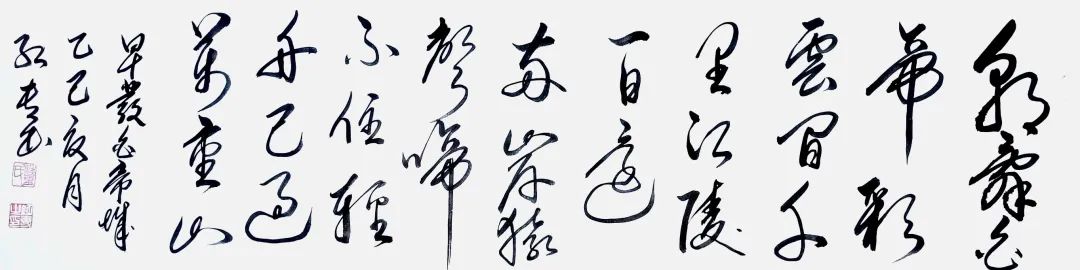 朝辭白
帝彩
雲間千
里江陵
一日還
兩岸猿
聲啼
不住輕
舟已過
萬重山
早發白帝城
乙巳夏月
书